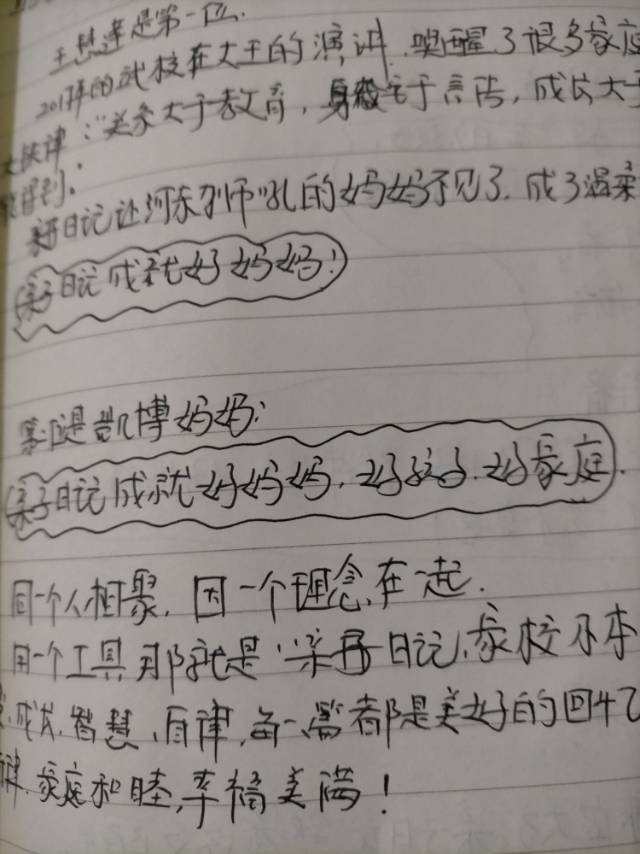 王慧莲是第一位.
2017年的武校在大王的演讲.唤醒了很多家庭
大铁律：“关系大于教育，身教言传，成长大于
得到：
亲子日记让河东狮吼的妈妈不见了.成了温柔
亲子日记成就好妈妈！
第二位是凯博妈妈：
亲子日记成就好妈妈.好孩子.好家庭.
因一个人相聚.因一个理念在一起.
用一个工具那就是亲子日记.家校本
成长.智慧、自律.每一篇都是美好的回忆
家庭和睦,幸福美满！